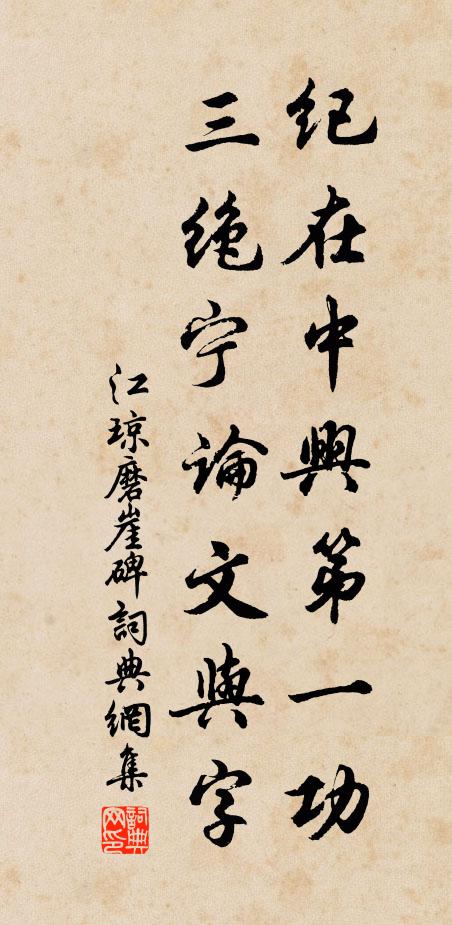 纪在中興第一功
三绝宁論文與字
江琼磨崖碑詞典網集
詞典网印